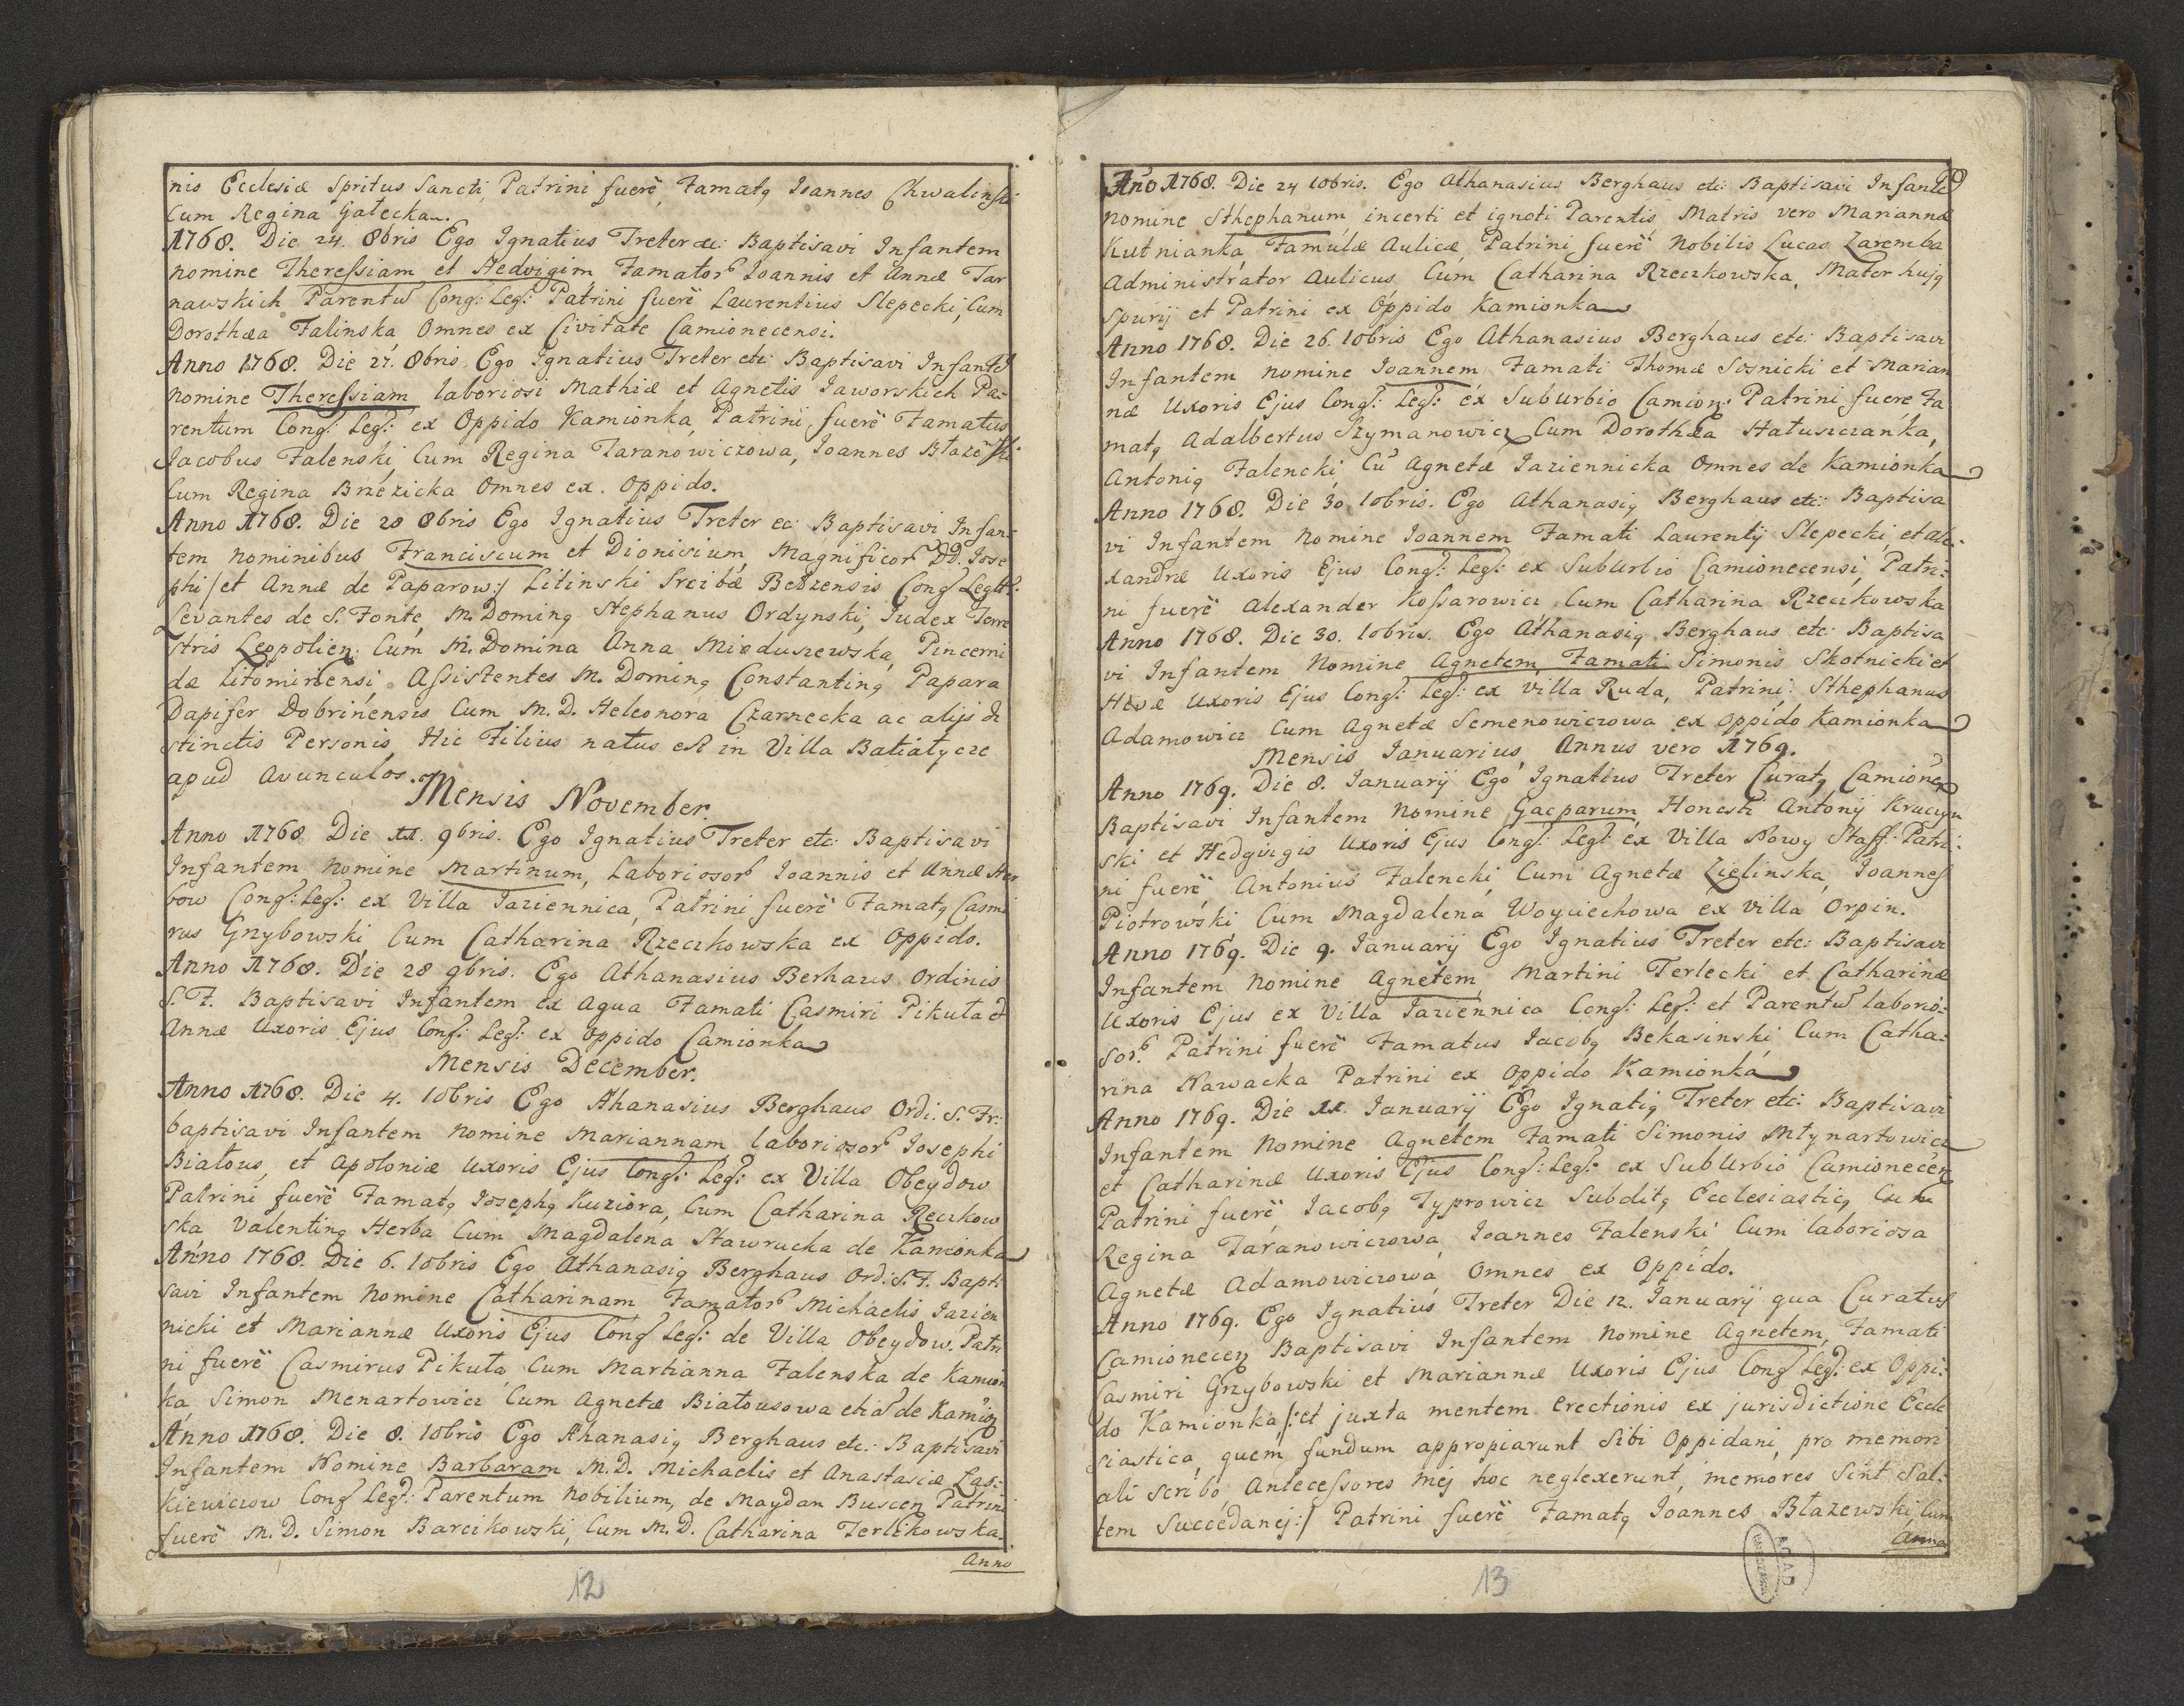 nis Ecclesiæ Spritus Sancti, Patrini fuerẽ, Famatq Ioannes Chwalinski
Cum Regina Gałecka.
1768. Die 24. 8bris Ego Ignatius Treter etc: Baptisavi Infantem
nomine Theressiam et Hedvigim Famator Ioannis et Annæ Tar
nawskich Parentũ Cong: Leg: Patrini fuerẽ Laurentius Slepecki, Cum
Dorothæa Falinska, Omnes ex Civitate Camionecensi.
Anno 1768. Die 27. 8bris Ego Ignatius Treter etc: Baptisavi Infantẽ
nomine Theressiam laboriosi Mathiæ et Agnetis Jaworskich Pa-
rentum Cong: Leg: ex Oppido Kamionka, Patrini fuerẽ Famatus
Jacobus Falenski, Cum Regina Taranowiczowa, Joannes Błazeski
Cum Regina Brzezicka Omnes ex. Oppido.
Anno 1768. Die 28 8bris Ego Ignatius Treter ec: Baptisavi Infan-
tem nominibus Franciscum et Dionisium, Magnificor DD. Jose
phi /et Annæ de Paparow:/ Litinski Srcibæ Bełzensis Cong Legtt:
Levantes de S. Fonte, M. Dominq Stephanus Ordynski, Iudex Terre
stris Leopolien: Cum M. Domina Anna Mioduszewska, Pincerni
dæ Litominensi, Assistentes M. Dominq Constantinq Papara
Dapifer Dobrinensis Cum M. D. Heleonora Czarnecka ac alijs di
stinctis Personis, Hic Filius natus est in Villa Batiatycze
apud Avunculos.
Mensis November.
Anno 1768. Die 11. 9bris. Ego Ignatius Treter etc: Baptisavi
Infantem nomine Martinum, Laboriosor Ioannis et Annæ Her
bow Cong: Leg: ex Villa Jaziennica, Patrini fuerẽ Famatq Casmi
rus Grzybowski Cum Catharina Rzeczkowska ex Oppido.
Anno 1768. Die 28 9bris. Ego Athanasius Berhaus Ordinis
S. F. Baptisavi Infantem ex Aqua Famati Casmiri Pikuła &
Annæ Uxoris Ejus Cong: Leg: ex Oppido Camionka
Mensis December.
Anno 1768. Die 4. 10bris Ego Athanasius Berghaus Ordi: S. Fr:
baptisavi Infantem nomine Mariannam laboriosor Josephi
Białous, et Apoloniæ Uxoris Ejus Cong: Leg: ex Villa Obeydow
Patrini fuerẽ Famatq Josephq Kuziora, Cum Catharina Reczkow
ska Valentinq Herba Cum Magdalena Stawrucka de Kamionka
Anno 1768. Die 6. 10bris Ego Athanasiq Berghaus Ord: S. F. Bapti
savi Infantem Nomine Catharinam Famator Michaelis Jazien
nicki et Mariannæ Uxoris Ejus Cong Leg: de Villa Obeydow. Patri
ni fuerẽ Casmirus Pikuła, Cum Martianna Falenska de Kamion
ka, Simon Menartowicz Cum Agnetæ Białousowa etiã de Kamion
Anno 1768. Die 8. 10bris Ego Athanasiq Berghaus etc: Baptisavi
Infantem Nomine Barbaram M. D. Michaelis et Anastasiæ Las-
kiewiczow Cong Leg: Parentum Nobilium, de Maydan Buscen, Patrini
fuerẽ M. D. Simon Barcikowski, Cum M. D. Catharina Terlikowska.
Anno
12
Ano 1768. Die 24 10bris. Ego Athanasius Berghaus etc: Baptisavi Infantẽ
nomine Sthephanum incerti et ignoti Parentis, Matris vero Mariannæ
Kutnianka, Famulæ Aulicæ, Patrini fuerẽ Nobilis Lucas Zaremba
Administrator Aulicus Cum Catharina Rzeczkowska, Mater hujq
Spurij et Patrini ex Oppido Kamionka
Anno 1768. Die 26. 10bris Ego Athanasius Berghaus etc: Baptisavi
Infantem nomine Joannem Famati Thomæ Sosnicki et Marian
næ Uxoris Ejus Cong: Leg: ex SubUrbio Camion: Patrini fuere Fa
matq Adalbertus Szymanowicz Cum Dorothæa Hałuszczanka,
Antoniq Falencki, Cũ Agnetæ Jaziennicka Omnes de Kamionka
Anno 1768. Die 30. 10bris. Ego Athanasiq Berghaus etc: Baptisa
vi Infantem Nomine Joannem Famati Laurentij Slepecki, et Ale-
xandræ Uxoris Ejus Cong: Leg: ex SubUrbio Camionecensi, Patri-
ni fuerẽ Alexander Kossarowicz Cum Catharina Rzeczkowska
Anno 1768. Die 30. 10bris. Ego Athanasiq Berghaus etc: Baptisa
vi Infantem Nomine Agnetem Famati Simonis Skotnicki et
Hevæ Uxoris Ejus Cong: Leg: ex villa Ruda, Patrini: Sthephanus
Adamowicz Cum Agnetæ Semenowiczowa ex Oppido Kamionka
Mensis Ianuarius, Annus vero 1769.
Anno 1769. Die 8. Ianuarij Ego Ignatius Treter Curatq Camionen
Baptisavi Infantem Nomine Gasparum, Honesti Antonij Kruczyn
ski et Hedgvigis Uxoris Ejus Cong: Leg: ex Villa Nowy Staff: Patri-
ni fuerẽ, Antonius Falencki, Cum Agnetæ Zielinska, Joannes
Piotrowski, Cum Magdalena Woyciechowa ex Villa Orpin.
Anno 1769. Die 9. Ianuarij Ego Ignatius Treter etc: Baptisavi
Infantem Nomine Agnetem, Martini Terlecki et Catharinæ
Uxoris Ejus ex Villa Jaziennica Cong: Leg: et Parentũ laborio-
sor. Patrini fuerẽ Famatus Iacobq Bekasinski Cum Catha-
rina Nawacka Patrini ex Oppido Kamionka
Anno 1769. Die 11. Ianuarij Ego Ignatiq Treter etc: Baptisavi
Infantem Nomine Agnetem Famati Simonis Młynartowicz
et Catharinæ Uxoris Ejus Cong: Leg: ex SubUrbio Camionecen
Patrini fuerẽ, Iacobq Typrowicz Subditq Ecclesiasticq Cum
Regina Taranowiczowa, Ioannes Falenski Cum laboriosa
Agnetæ Adamowiczowa, Omnes ex Oppido.
Anno 1769. Ego Ignatius Treter Die 12. Ianuarij qua Curatus
Camionecen Baptisavi Infantem Nomine Agnetem, Famati
Casmiri Grzybowski et Mariannæ Uxoris Ejus Cong Leg: ex Oppi-
do Kamionka /:et juxta mentem Erectionis ex jurisdictione Eccle
siastica, quem fundum appropiarunt Sibi Oppidani, pro memori
ali scribo, Antecessores mej hoc neglexerunt, memores Sint Sal-
tem Succedanej:/ Patrini fuerẽ Famatq Joannes Błazewski, Cum
Anna
13
AGAD